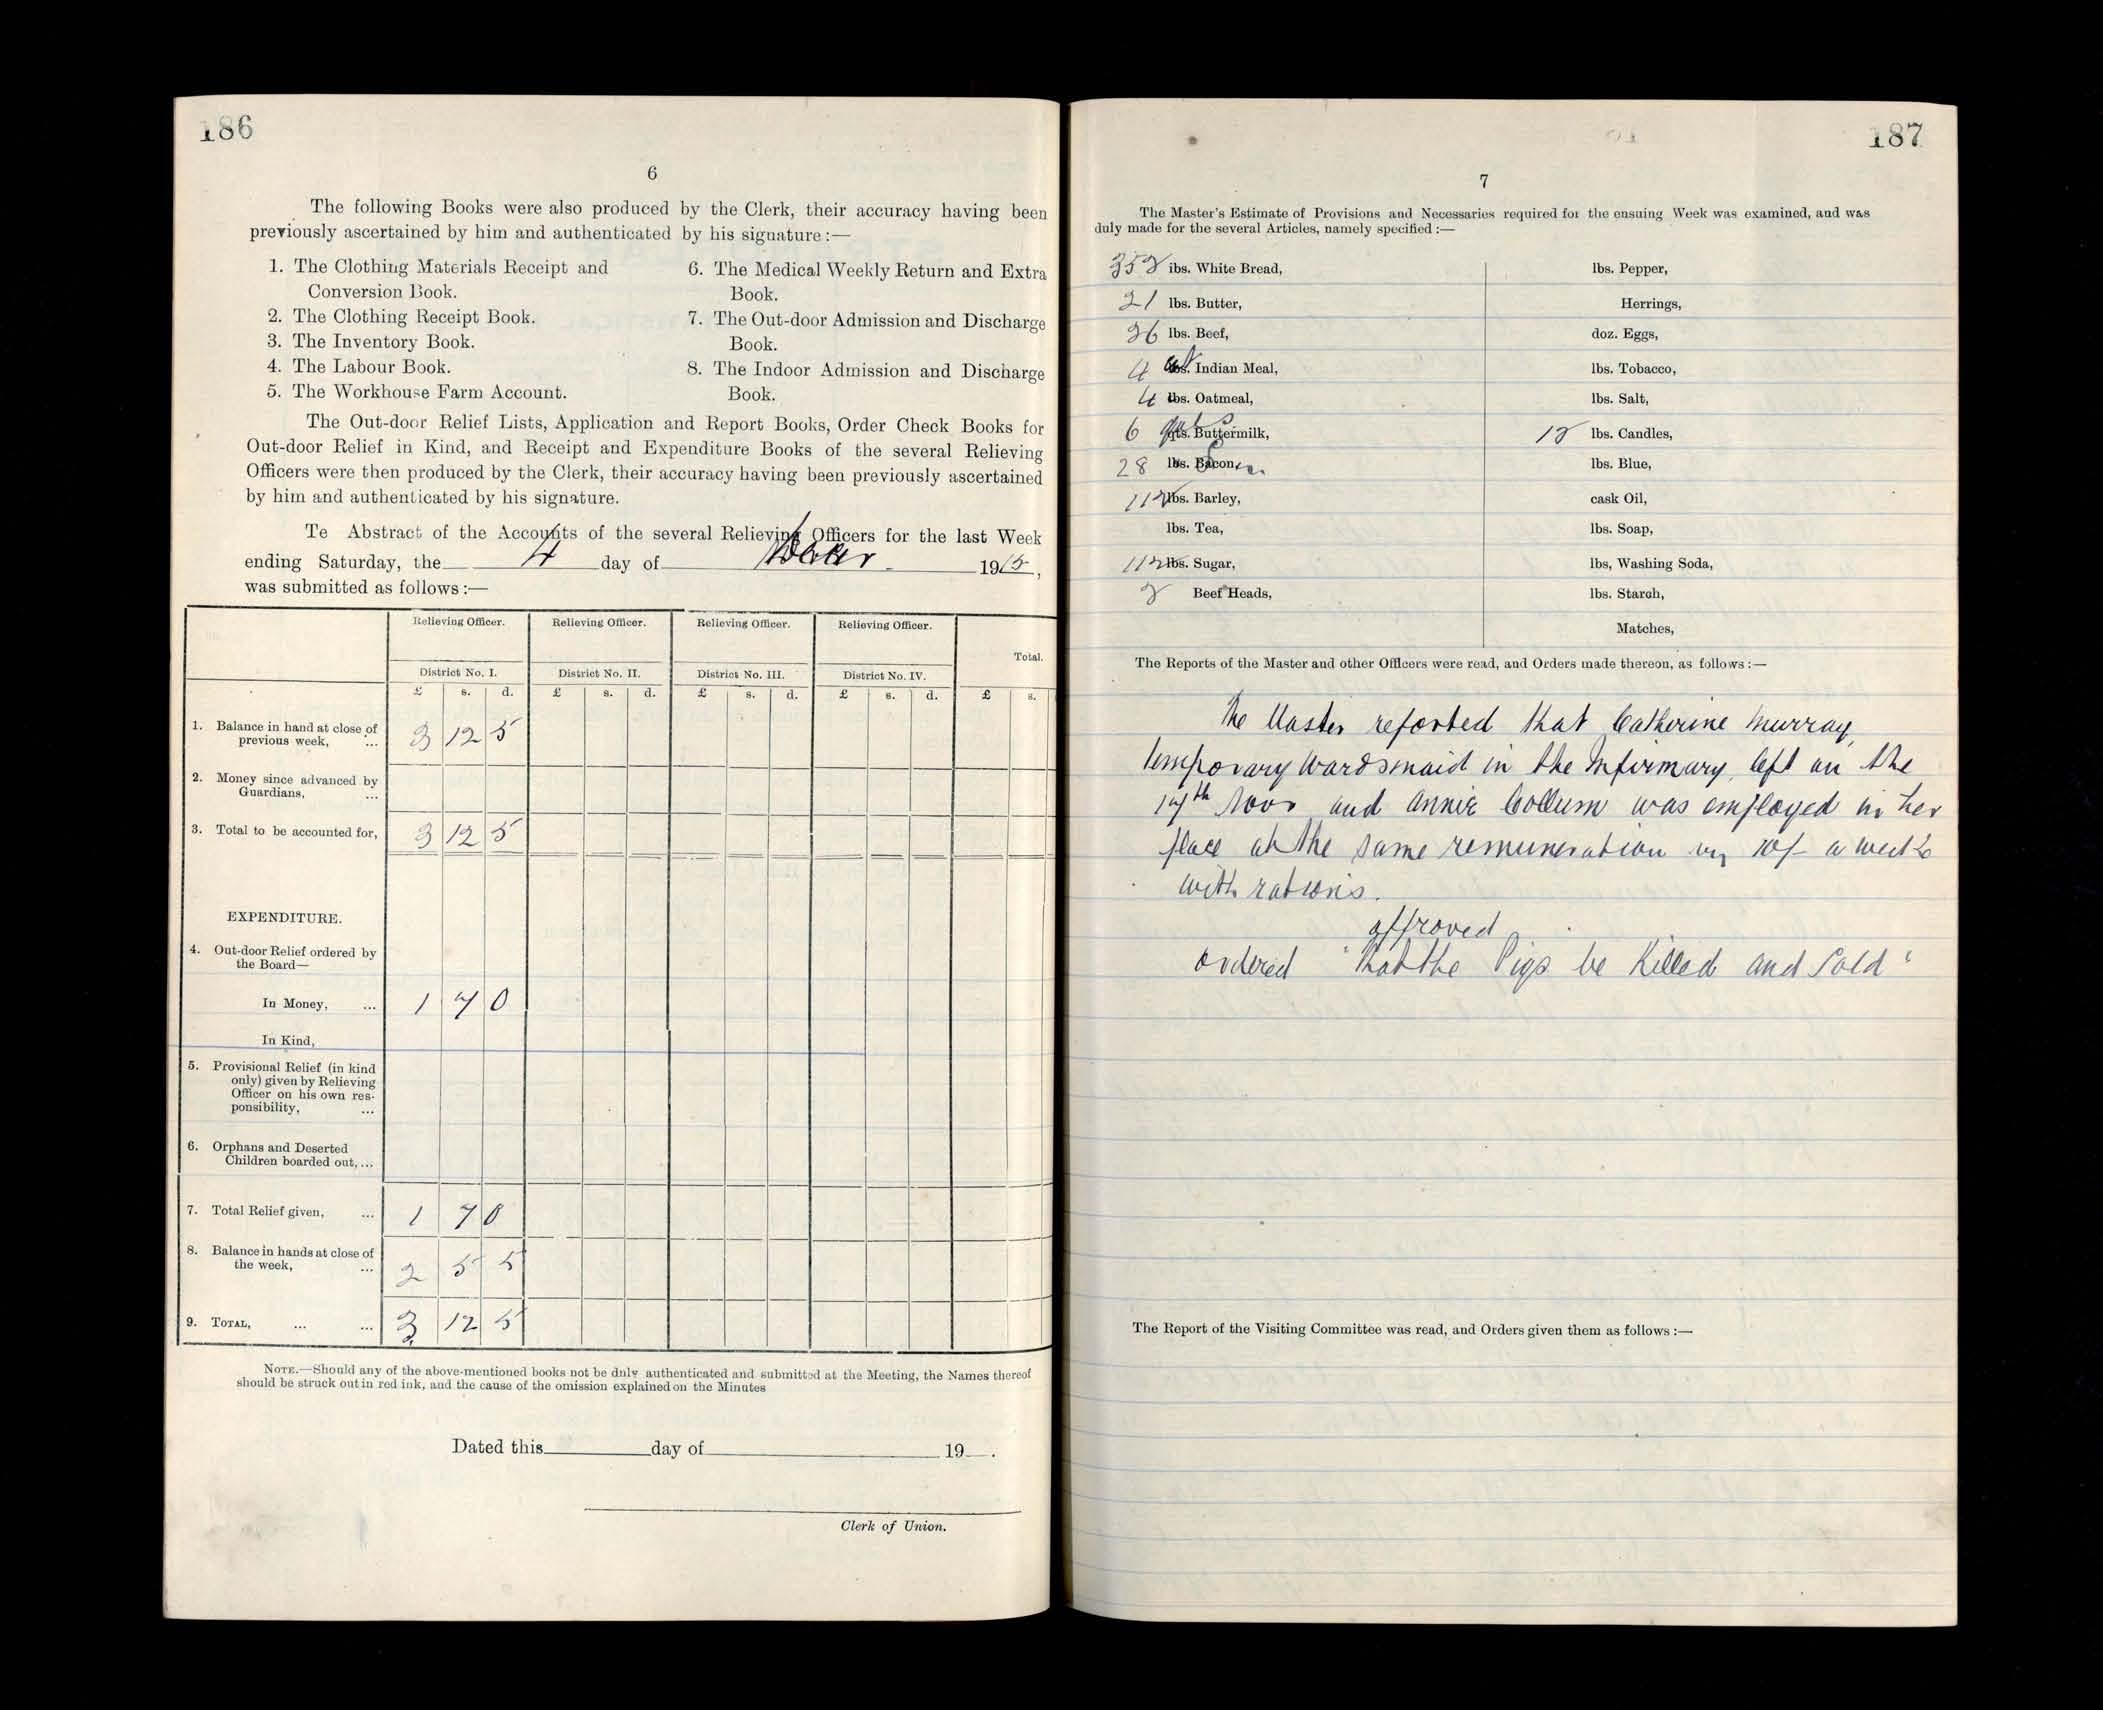 186
6
The following Books were also produced by the Clerk, their accuracy having been
previously ascertained by him and authenticated by his signature :—
1. The Clothing Materials Receipt and
Conversion Book.
2. The Clothing Receipt Book.
3. The Inventory Book.
4. The Labour Book.
5. The Workhouse Farm Account.
6. The Medical Weekly Return and Extra
Book.
7. The Out-door Admission and Discharge
Book.
8. The Indoor Admission and Discharge
Book.
The Out-door Relief Lists, Application and Report Books, Order Check Books for
Out-door Relief in Kind, and Receipt and Expenditure Books of the several Relieving
Officers were then produced by the Clerk, their accuracy having been previously ascertained
by him and authenticated by his signature.
Te Abstract of the Accounts of the several Relieving Officers for the last Week
ending Saturday, the 4 day of 19
was submitted as follows :—
Relieving Officer. Relieving Officer. Relieving Officer. Relieving Officer.
Total.
District No. I. District No. II. District No. III. District No. IV.
£ s. d. £ s. d. £ s. d. £ s. d. £ s.
1. Balance in hand at close of
previous week, ... 3 12 5
2. Money since advanced by
Guardians, ...
3. Total to be accounted for, 3 12 5
EXPENDITURE.
4. Out-door Relief ordered by
the Board—
In Money, ... 1 7 0
In Kind,
5. Provisional Relief (in kind
only) given by Relieving
Officer on his own res-
ponsibility, ...
6. Orphans and Deserted
Children boarded out, ...
7. Total Relief given, ... 1 7 0
8. Balance in hands at close of
the week, ... 2 5 5
9. TOTAL, ... ... 3 12 5
NOTE.—Should any of the above-mentioned books not be dnly authenticated and submitted at the Meeting, the Names thereof
should be struck out in red ink, and the cause of the omission explained on the Minutes
Dated this day of 19 .
Clerk of Union.
187
7
The Master's Estimate of Provisions and Necessaries required for the ensuing Week was examined, and was
duly made for the several Articles, namely specified :—
352 lbs. White Bread,
21 lbs. Butter,
26 lbs. Beef,
4 cwt Indian Meal,
4 lbs. Oatmeal,
6 gals Buttermilk,
28 lbs. Bacon,
112 lbs. Barley,
lbs. Tea,
112 lbs. Sugar,
2 Beef Heads,
lbs. Pepper,
Herrings,
doz. Eggs,
lbs. Tobacco,
lbs. Salt,
12 lbs. Candles,
lbs. Blue,
cask Oil,
lbs. Soap,
lbs, Washing Soda,
lbs. Starch,
Matches,
The Reports of the Master and other Officers were read, and Orders made thereon, as follows :—
The Master reported that Catherine Murray,
temporary Wardsmaid in the Infirmary, left on the
17th Novr and Annie Collum was employed in her
place at the same remuneration viz 10/- a week
with rations.
approved
Ordered "That the Pigs be Killed and Sold"
The Report of the Visiting Committee was read, and Orders given them as follows :—